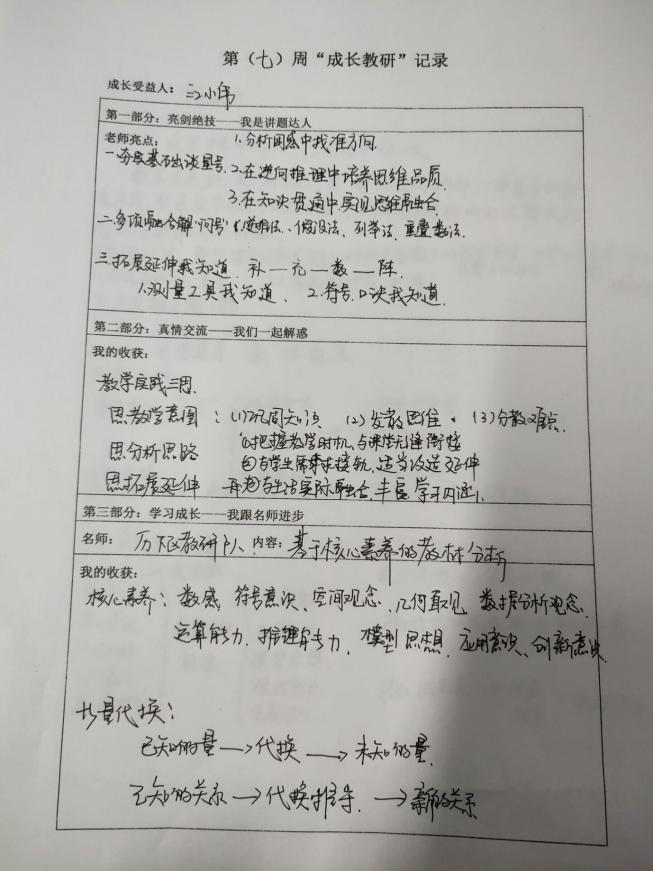 第（七）周“成长教研”记录
成长受益人：江小伟
第一部分：亮剑绝技——我是讲题达人
老师亮点：
1.分析困惑中找准方向
一.夯实基础谈星号
2.在逆向推理中培养思维品质
3.在知识贯通中实现思维融合
二.多项融合解“问号”
假设法、列举法、重叠数法.
三.拓展延伸我知道 补—充—数—阵
1.测量工具我知道、2.符号口诀我知道.
第二部分：真情交流——我们一起解惑
我的收获：
教学实践三思.
思教学意图：(1)巩固知识 (2)发散思维 (3)分散难点.
思分析思路 ①把握教学时机，与课堂无缝衔接
②与学生需求接轨，适当改造延伸
思拓展延伸 再与生活实际融合，丰富学习内涵.
第三部分：学习成长——我跟名师进步
名师：历下区教研队、内容：基于核心素养的教材分析
我的收获：
核心素养：数感 符号意识、空间观念、几何直观 数据分析观念.
运算能力，推理能力，模型思想，应用意识、创新意识
等量代换：
已知的量→代换→未知的量.
已知的关系→代换推导→新的关系